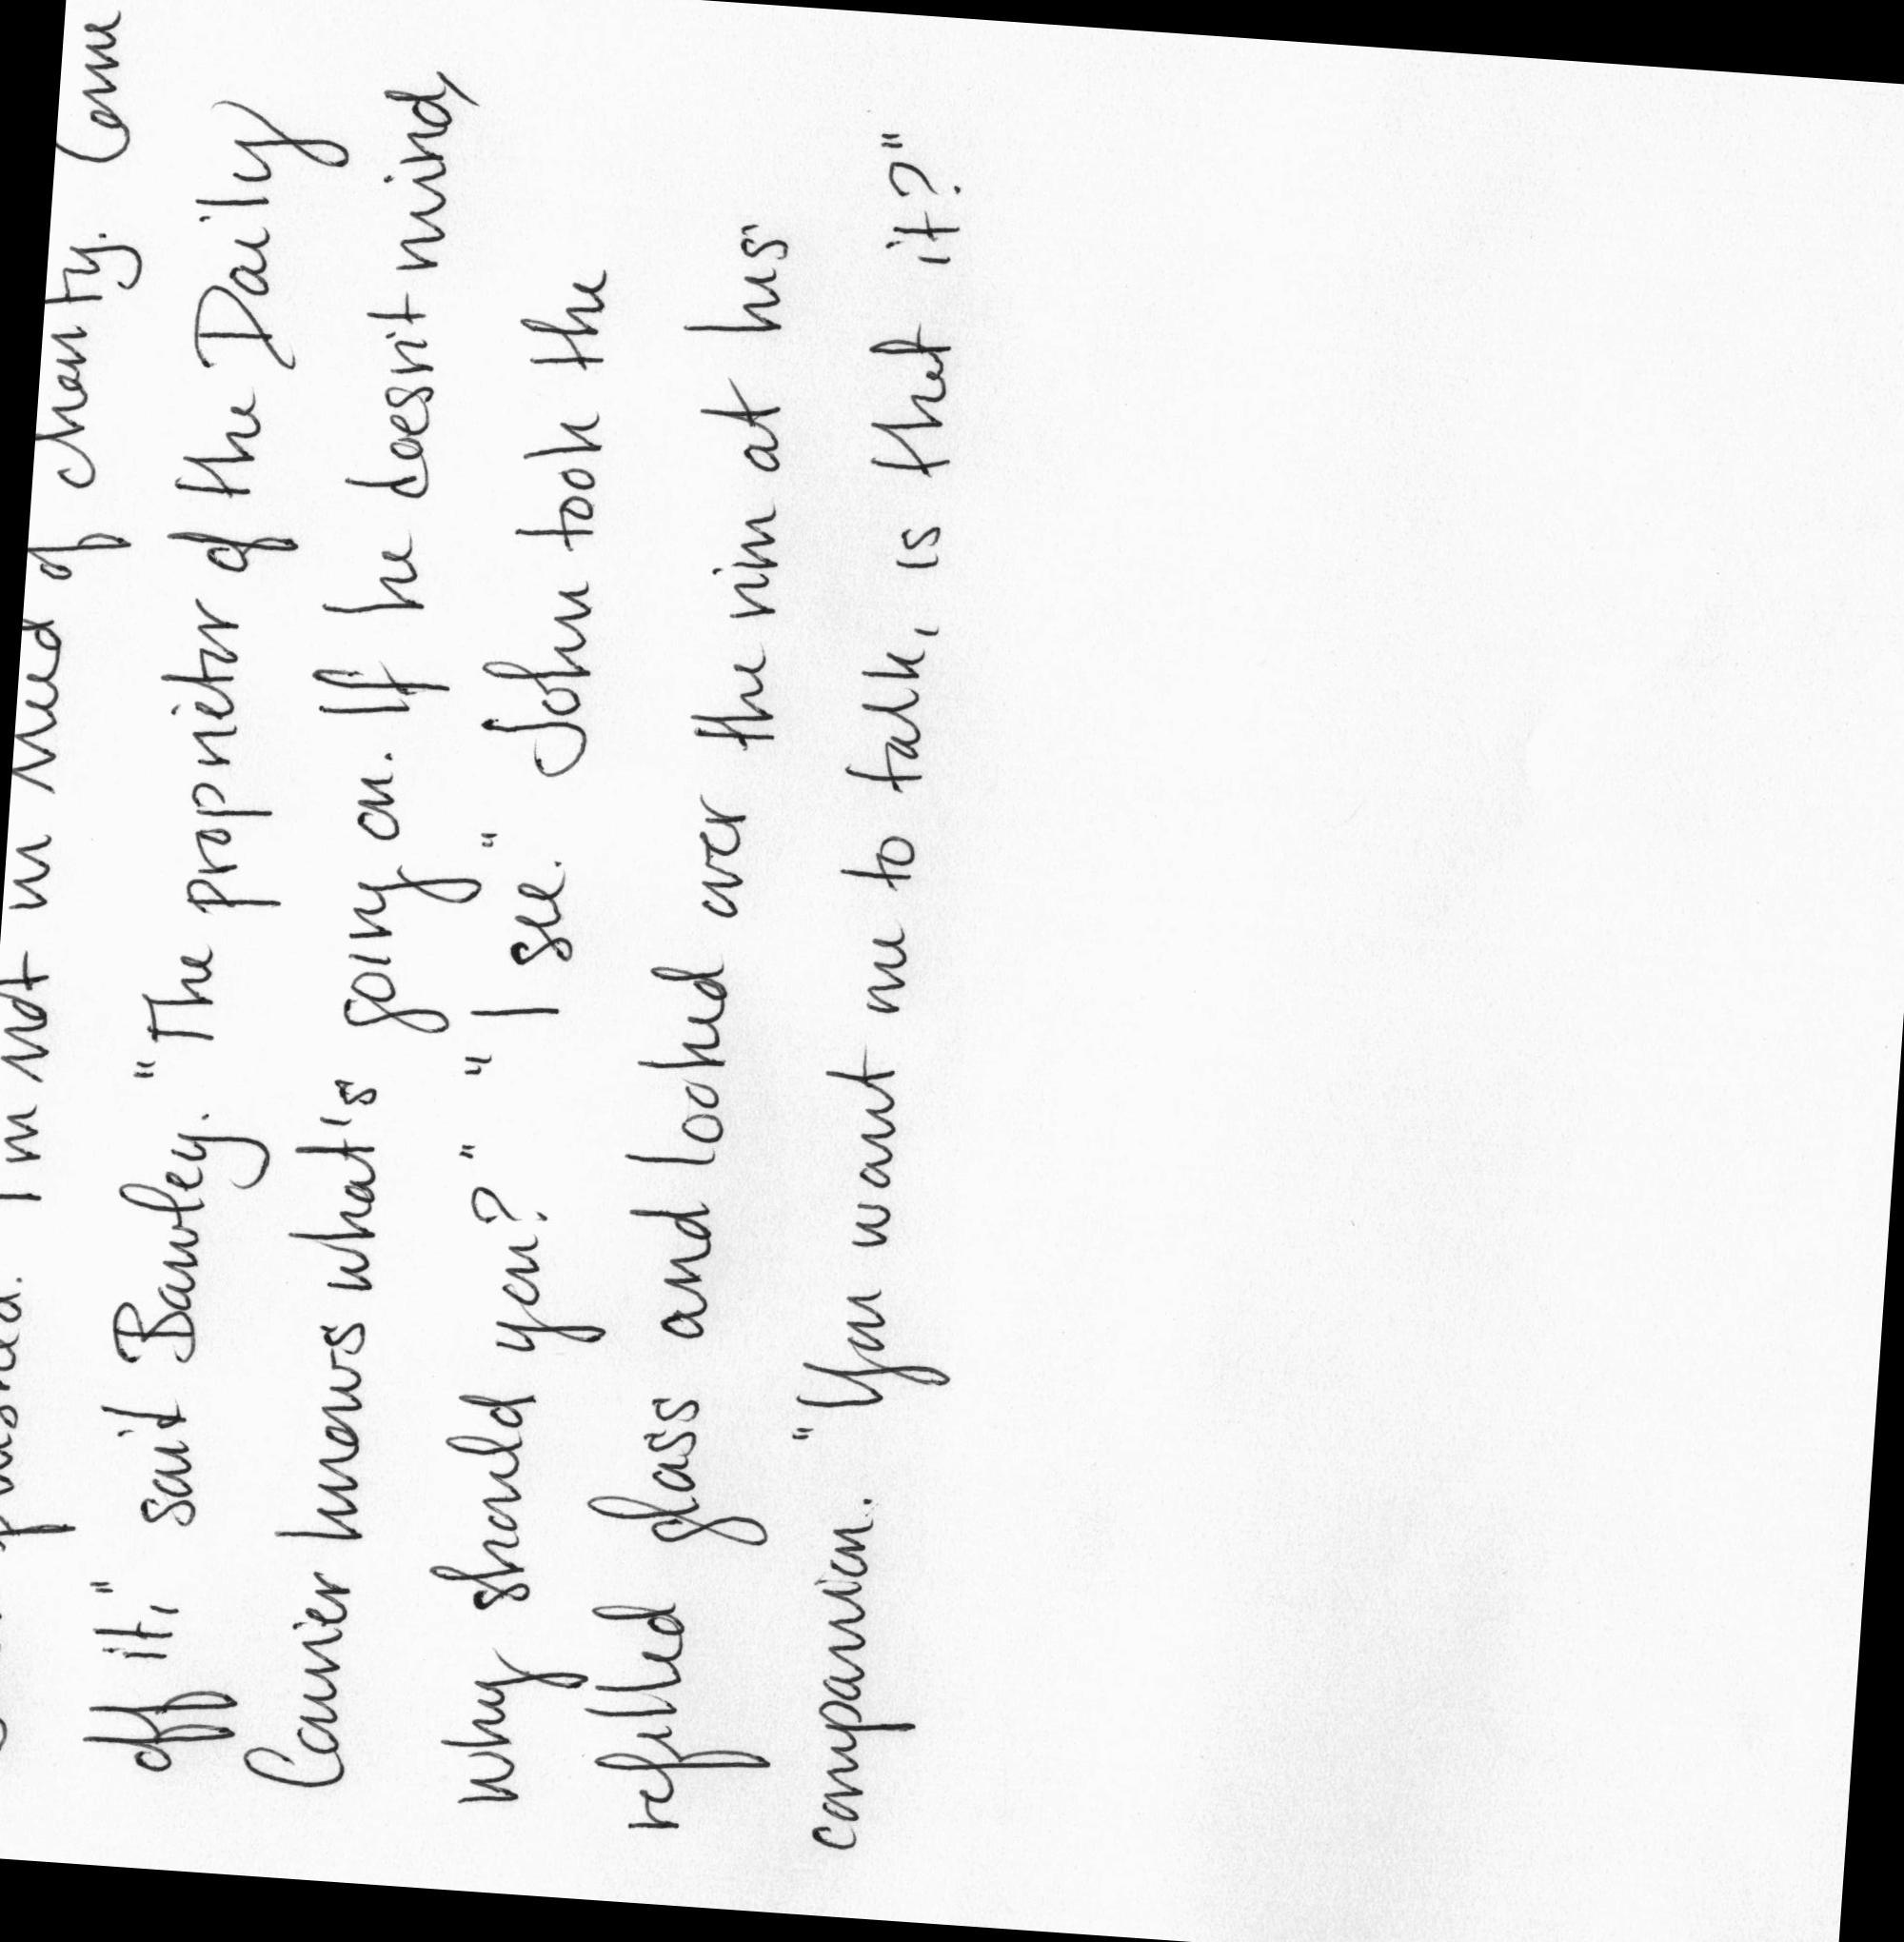 I'm not in need of charity. Come
off it," said Bawley. "The proprietor of the Daily
Courier knows what's going on. If he doesn't mind,
why should you?" "I see." John took the
refilled glass and looked over the rim at his
companion. "You want me to talk, is that it?"